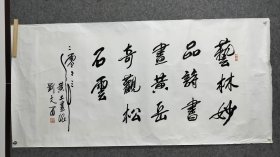 藝林妙
品諸書
畫黃岳
奇觀松
石雲
二零十三
劉文西